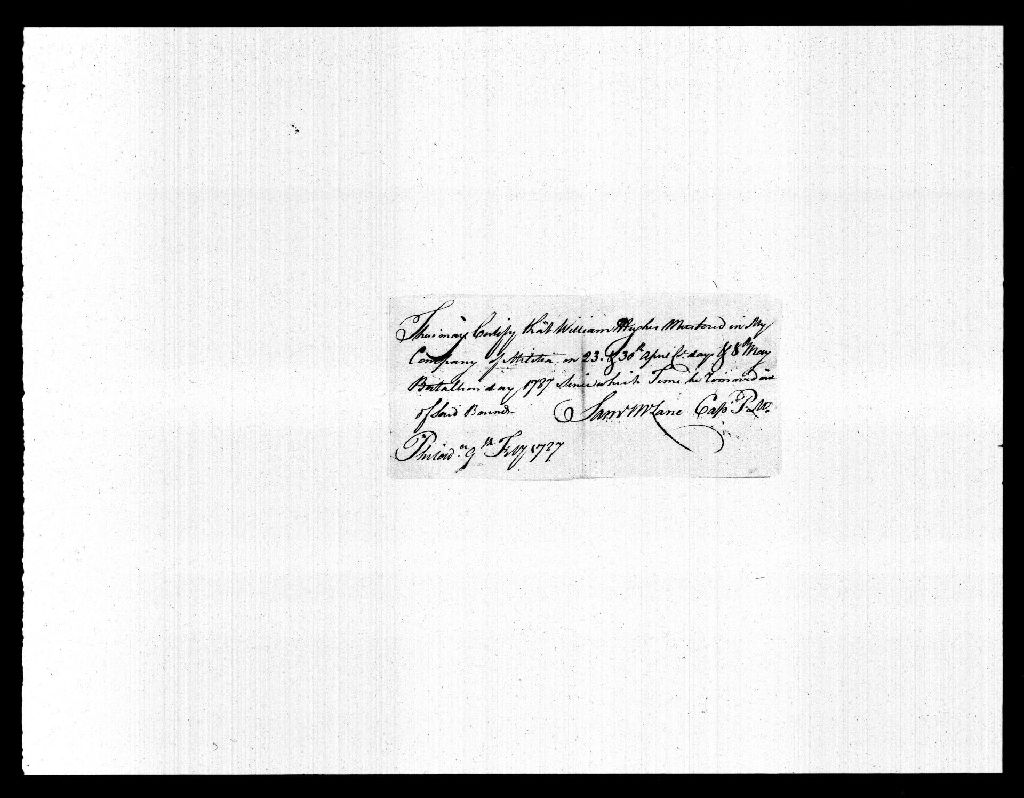 This may Certify that William Hughes Mustered in My
Company of Militia on 23. & 30th April Co. day & 8th May
Battallion day, 1787 Since which Time he removed out
of said Bounds Saml McLane Capt. P.
Philad.a 9th 1787